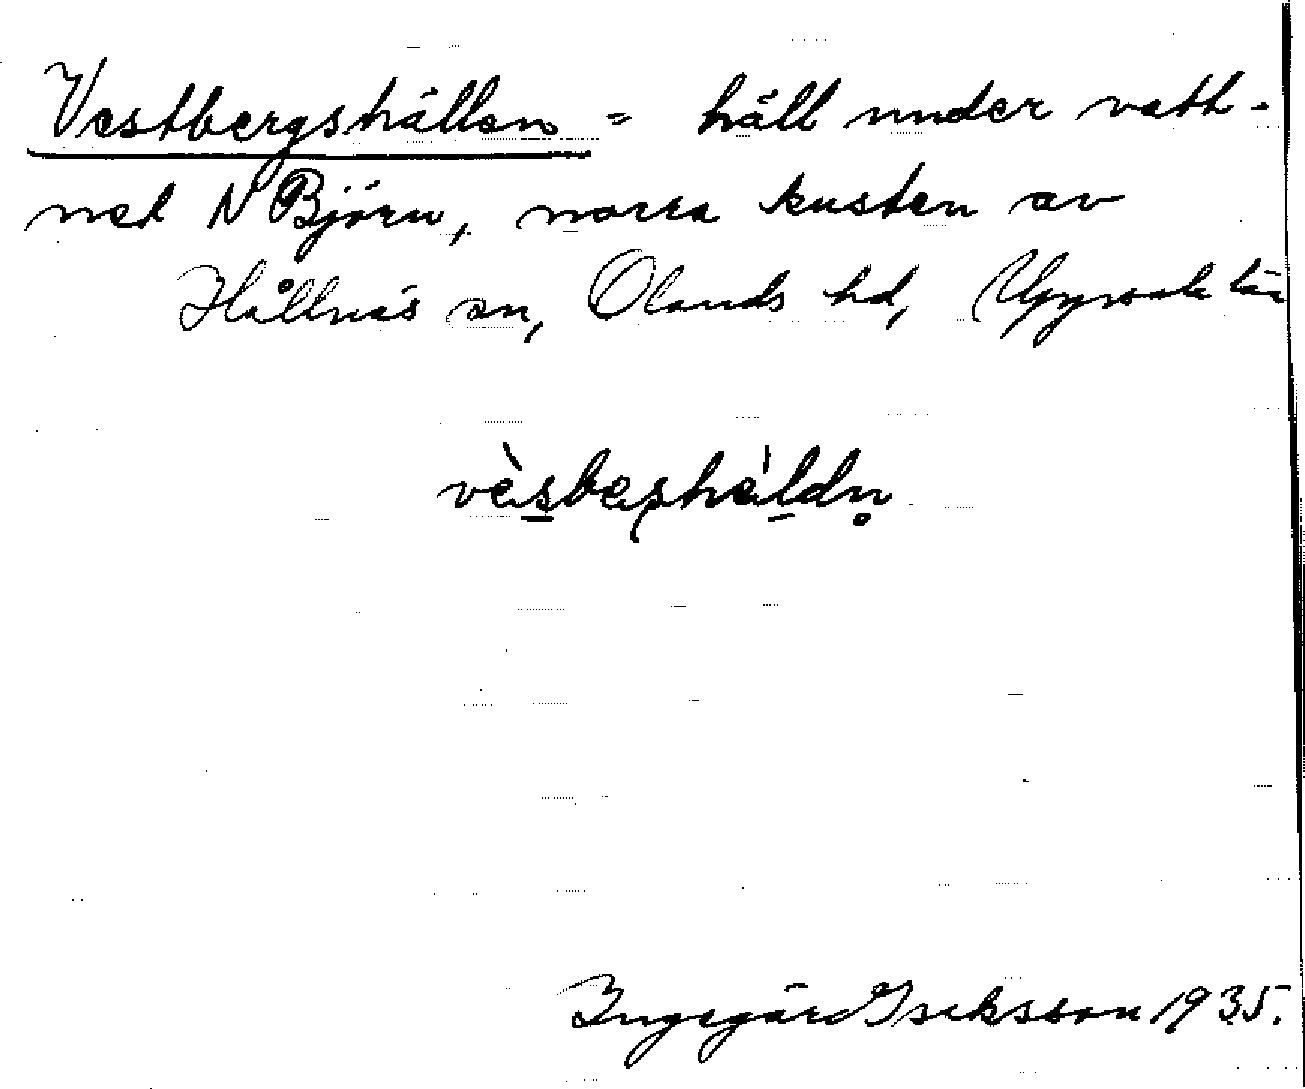 Vestbergshällen = häll under vatt-
net N Björn, norra kusten av
Hållnäs sn, Olands hd, Uppsala län
vèsbeshéldn
Ingegärd Iseksson 1935.